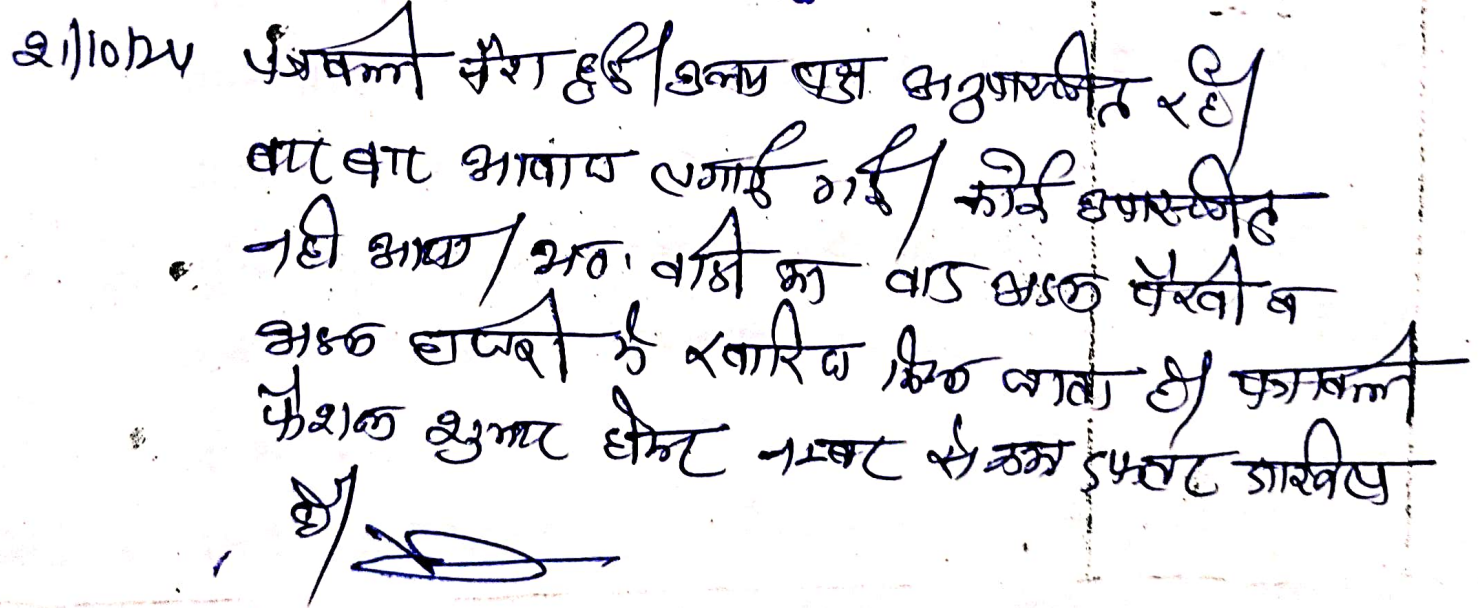 21/10/24 पत्रावली पेश हुई। उभय पक्ष अनुपस्थित रहे।
बार बार आवाज लगाई गई। कोई उपस्थित
नही आया। अतः वादी का वाद अदम पैरवी व
अदम हाजरी मे खारिज किया जाता है। पत्रावली
फैशल शुमार होकर नम्बर से कम दफ्तर दाखिल
हो।